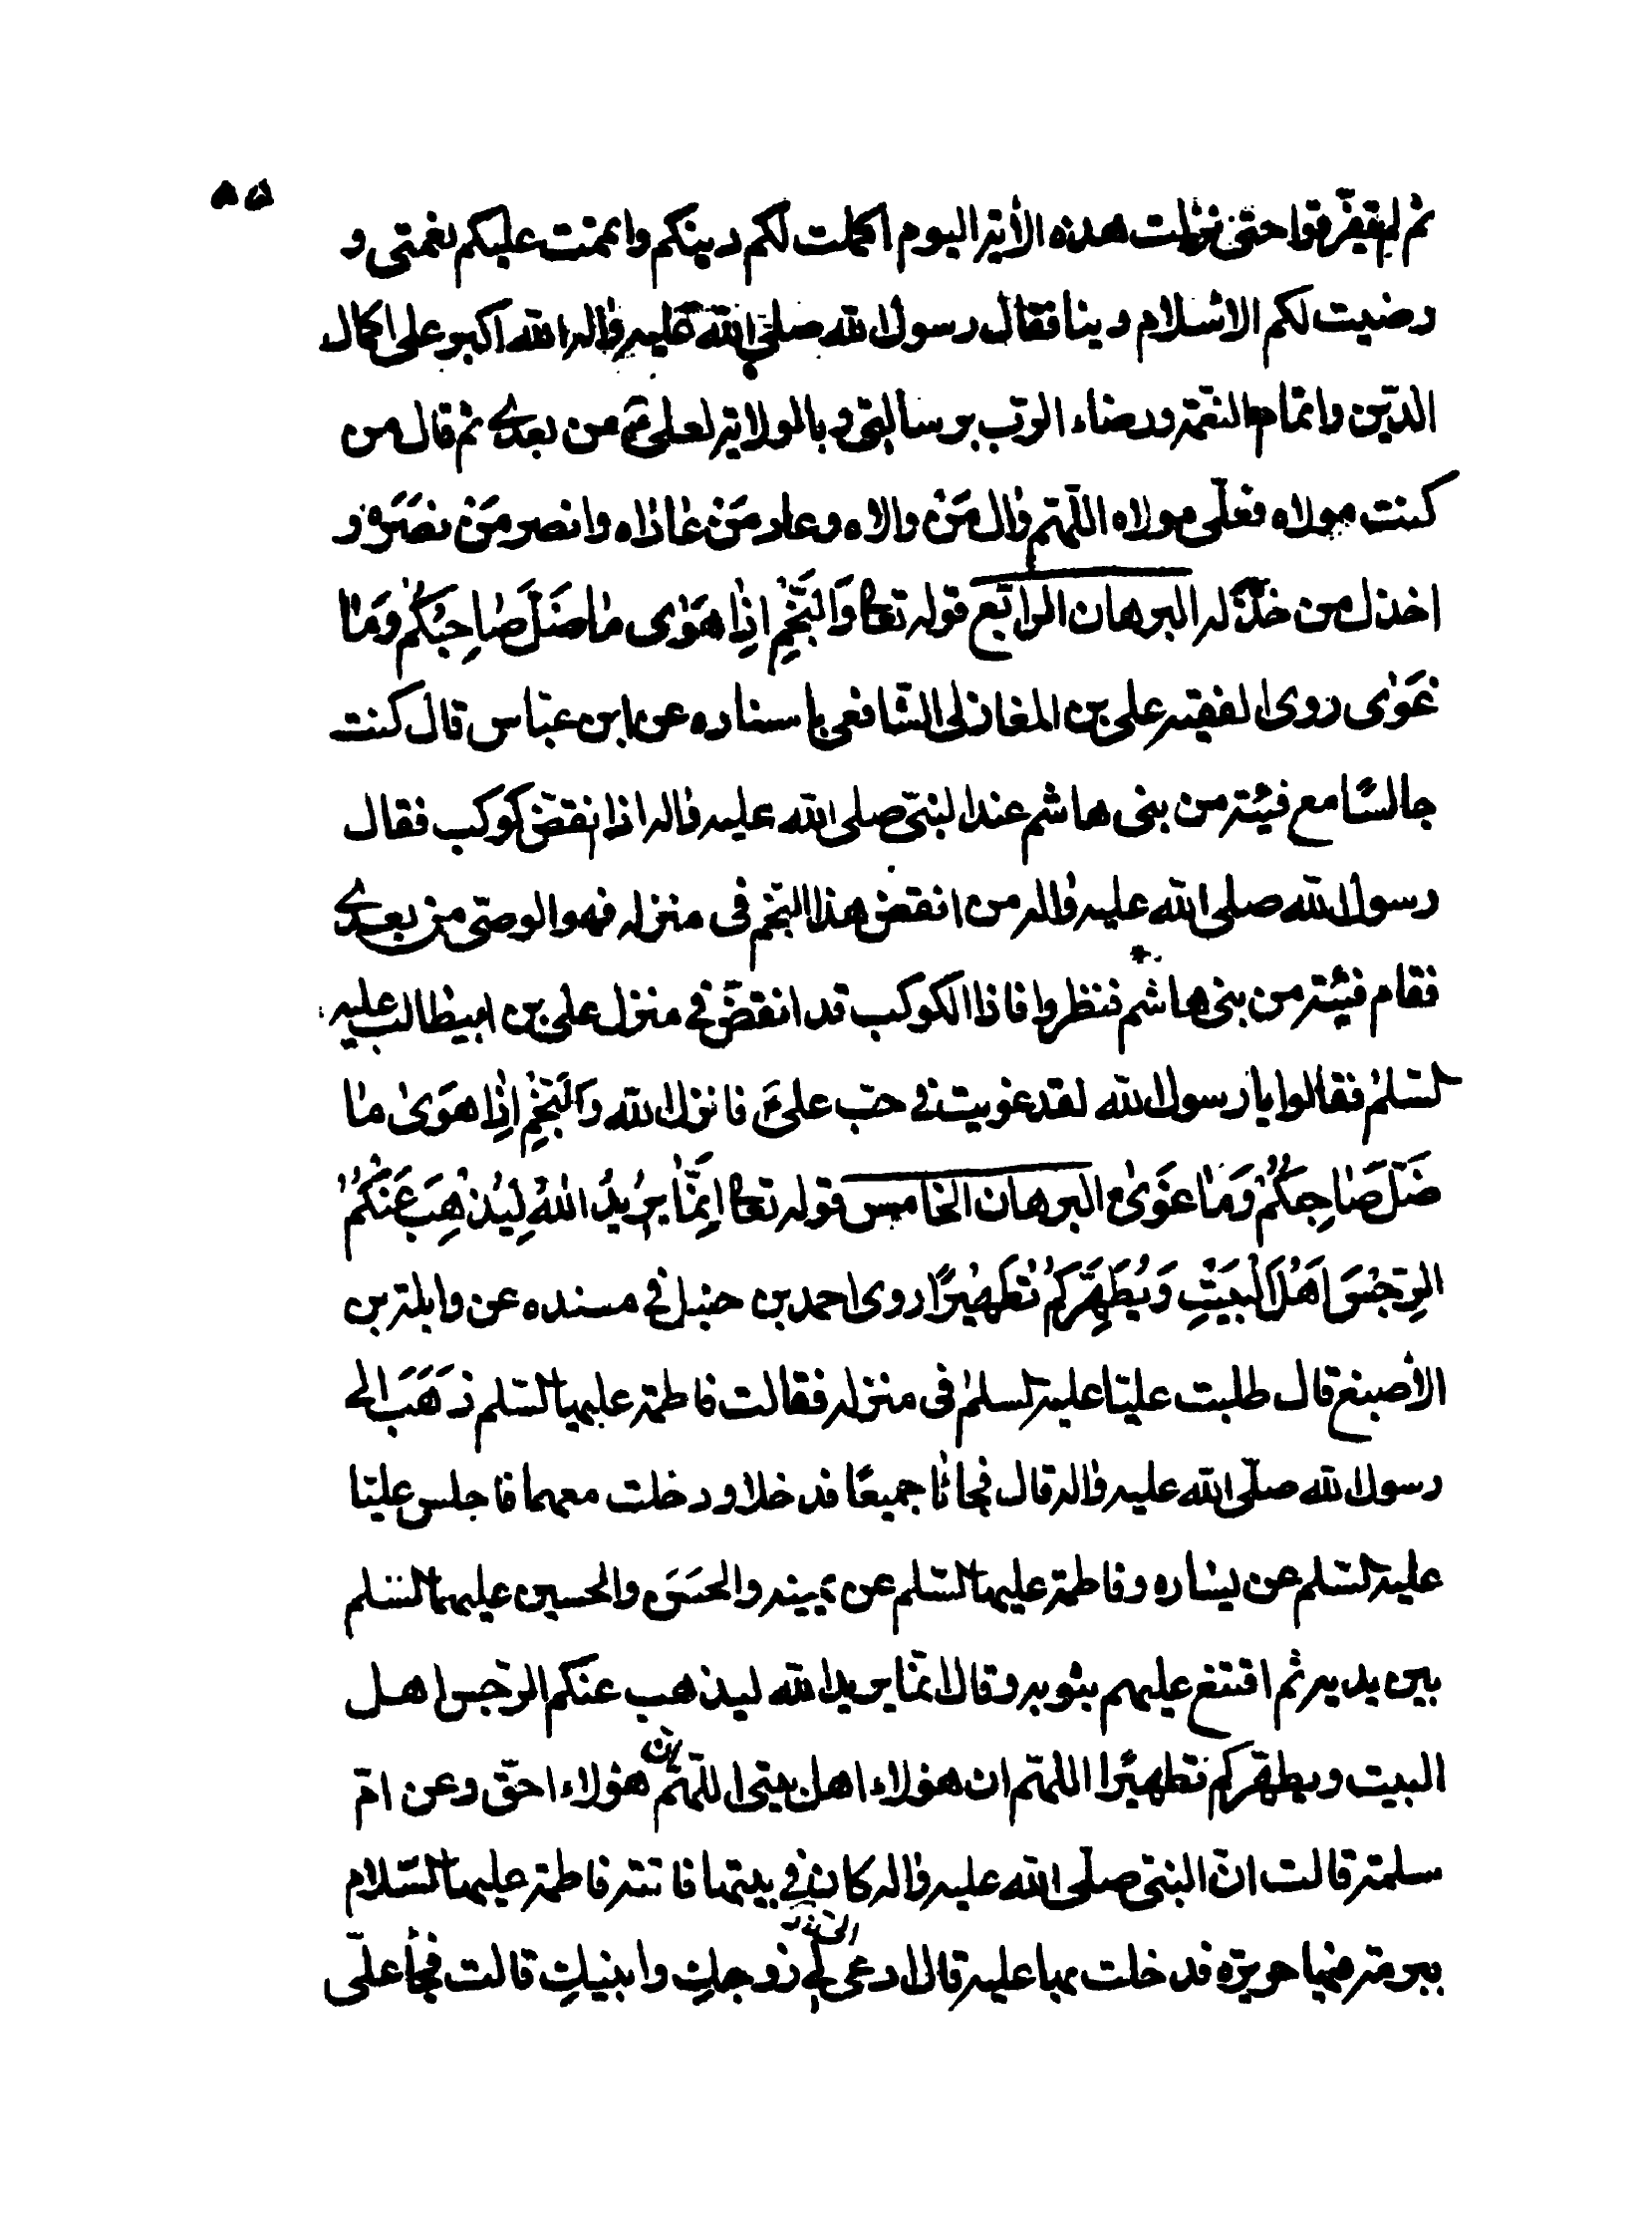 ۵۵
ثم لم يتفرقوا حتى نزلت هذه الاية اليوم اكملت لكم دينكم واتممت عليكم نعمتى و
رضيت لكم الاسلام دينا فقال رسول الله صلى الله عليه واله الله اكبر على اكمال
الدّين واتمام النعمة ورضاء الربّ برسالتى وبالولاية لعلىّ من بعدى ثم قال من
كنت مولاه فعلّى مولاه اللّهمّ وال مَنْ والاه وعاد مَنْ عاداه وانصر مَنْ نصَرَه و
اخذل من خذله البرهان الرابع قوله تعا وَالنَّجْمِ اِذا هَوٰى ما ضَلَّ صٰاحِبُكُمْ وَمٰا
غَوٰى روى الفقيه على بن المغازلى الشّافعى باسناده عن ابن عبّاس قال كنت
جالسًا مع فيئة من بنى هاشم عند النبىّ صلى الله عليه واله اذا نقضّ كوكب فقال
رسول الله صلى الله عليه واله من انقض هذا النجم فى منزله فهو الوصىّ من بعدى
فقام فيئة من بنى هاشم فنظروا فاذا الكوكب قد انقضّ في منزل على بن ابيطالب عليه
لسّلمٰ فقالوا يا رسول الله لقد غويت في حبّ علىّ فانزل الله وَالنَّجْمِ اِذا هَوىٰ مٰا
ضَلَّ صٰاحِبكُمْ وَمٰا غَوىٰ البرهان الخامس قوله تعا اِنَّمٰا يُريدُ اللهُ لِيُذْهِبَ عَنْكُمُ
الرِّجْسَ اَهْلَ الْبَيْتِ وَيُطَهِّرَكُمْ تَطْهيرًا روى احمد بن حنبل في مسنده عن وايلة بن
الأصبغ قال طلبت عليّا عليه لسلمٰ فى منزله فقالت فاطمة عليها لسّلم ذهَبَ الى
رسول الله صلّى الله عليه واله قال فجائا جميعًا فدخلا ودخلت معهما فاجلس عليّا
عليه لسّلم عن يساره وفاطمة عليها لسّلم عن يمينه والحسَنَ والحسين عليهما لسّلم
بين يديه ثم اقتنع عليهم بثوبه وقال انّما يريد الله ليذهب عنكم الرّجس اهل
البيت ويطهّركم تطهيرًا اللهمّ ان هؤلاء اهل بيتى اللّهمّ ان هؤلاء احقّ وعن امّ
سلمة قالت انّ النبىّ صلّى الله عليه واله كان في بيتها فاتته فاطمة عليها لسّلام
ببرمة فيها حريرة فدخلت بها عليه قال ادعى لى زوجكِ وابنيكِ قالت فجأ علّى